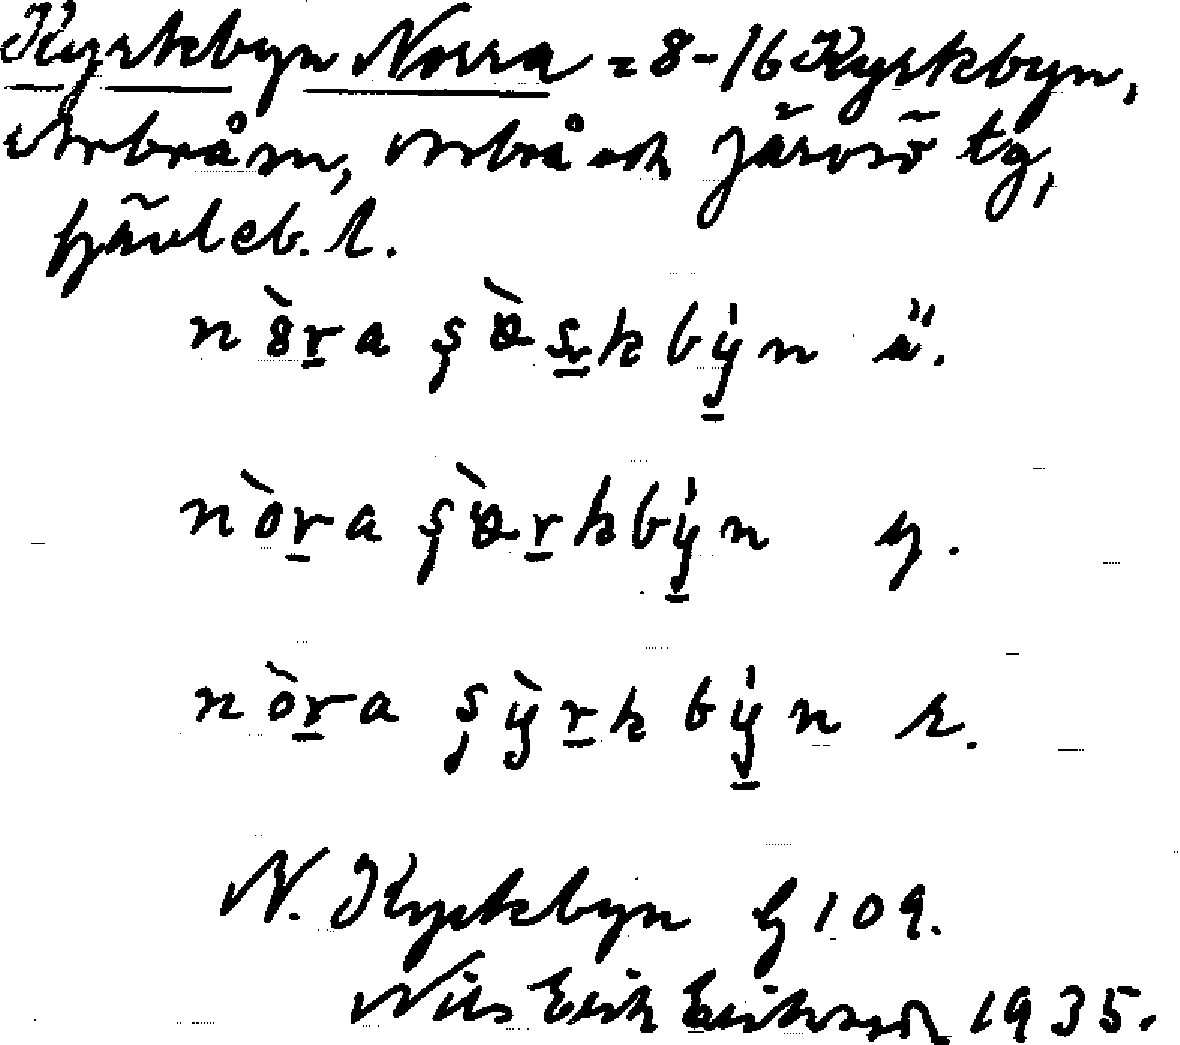 Kyrkbyn Norra = 8-16 Kyrkbyn,
Arbrå sn, Arbrå och Järvsö tg,
Gävleb. l.
nòra şœ̀rkbýn ä.
nòra şœ̀rkbýn y.
nòra şỳrkbýn r.
N. Kyrkbyn G 109.
Nils Erik Eriksson 1935.